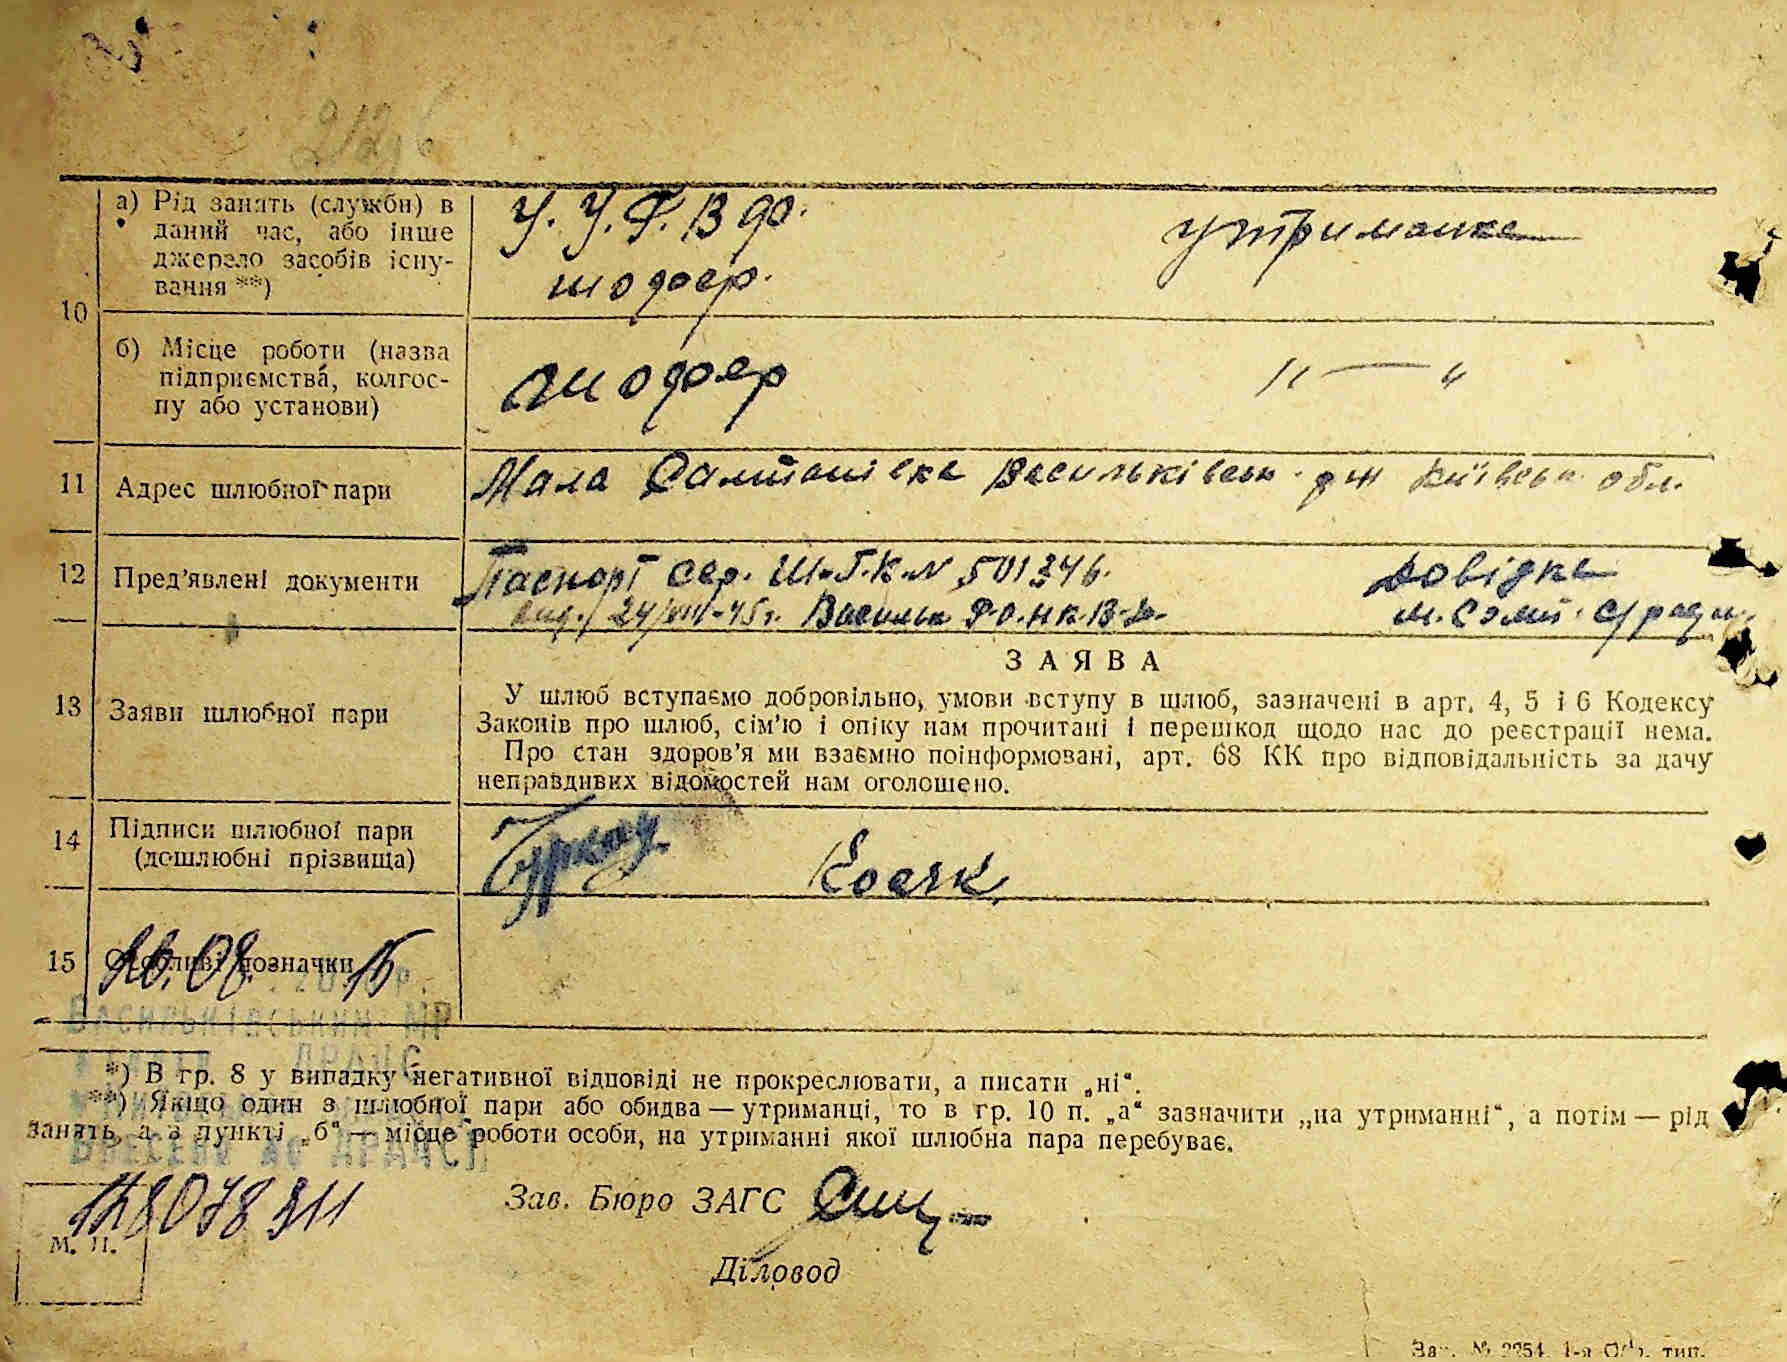 10
а) Рід занять (служби) в
даний час, або інше
джерело засобів існу-
вання **)
У. У. Ф. В до.
шофер.
утриманка
б) Місце роботи (назва
підприємства, колгос-
пу або установи)
шофер
" — "
11 Адрес шлюбної пари
Мала Салтанівка Васильківськ. р-н Київськ. обл.
12 Пред'явлені документи
Паспорт сер. Ш-Г.К. N 501346.
вид. 24/VIII-45 г. Васильк. Р.О.Н.К.В.Д.
довідка
м. Салт. с/ради.
13 Заяви шлюбної пари
ЗАЯВА
У шлюб вступаємо добровільно, умови вступу в шлюб, зазначені в арт. 4, 5 і 6 Кодексу
Законів про шлюб, сім'ю і опіку нам прочитані і перешкод щодо нас до реєстрації нема.
Про стан здоров'я ми взаємно поінформовані, арт. 68 КК про відповідальність за дачу
неправдивих відомостей нам оголошено.
14 Підписи шлюбної пари
(дошлюбні прізвища)
15 Особливі позначки
Васильківський МР
ДРАЦС
*) В гр. 8 у випадку негативної відповіді не прокреслювати, а писати „ні“.
**) Якщо один з шлюбної пари або обидва — утриманці, то в гр. 10 п. „а“ зазначити „на утриманні“, а потім — рід
занять, а в пункті „б“ — місце роботи особи, на утриманні якої шлюбна пара перебуває.
Внесено до ДРАЦСГ
М. П.
Зав. Бюро ЗАГС
Діловод